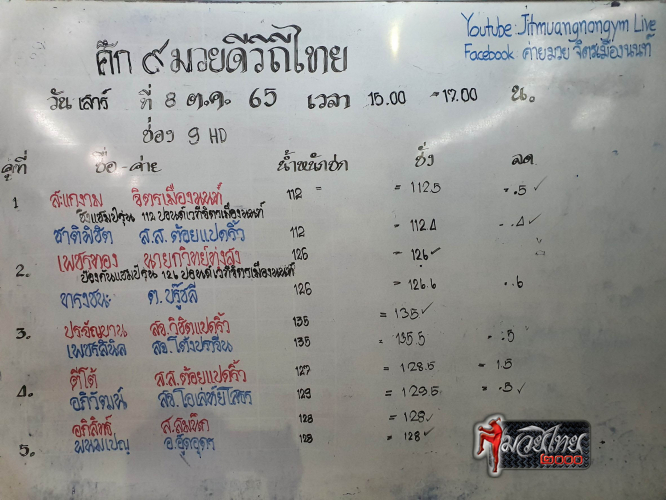 Youtube: Jitmuangnongym Live
Facebook ค่ายมวย จิตรเมืองนนท์
ศึก ๙ มวยดีวิถีไทย
วัน เสาร์ ที่ 8 ต.ค. 65 เวลา 15.00 - 17.00 น.
ช่อง 9 HD
คู่ที่ ชื่อ - ค่าย น้ำหนัก ชั่ง ลด
1 สะแกงาม จิตรเมืองนนท์ 112 = = 112.5 = .5 ✓
ชิงแชมป์รุ่น 112 ปอนด์เวทีจิตรเมืองนนท์
ชาติพิชิต ส.ส.ต้อยแปดริ้ว 112 = 112.4 = .4 ✓
2. เพชรทอง นายกวิทย์ทุ่งสง 126 = 126 ✓
ป้องกันแชมป์รุ่น 126 ปอนด์ เวทีจิตรเมืองนนท์
ทรงชนะ ต. 126 = 126.6 .6
= 135 ✓
3. สจ.วิชิตแปดริ้ว 135
เพชรสีนิล สจ.โต้งปราจีน 135 = 135.5 = .5
ตีโต้ ส.ส.ต้อยแปดริ้ว 127 = 128.5 = 1.5
4. อภิวัฒน์ 129 = 129.5 = .5 ✓
อภิสิทธิ์ 128 = 128 ✓
5. 128 = 128 ✓
มวยไทย
๒๐๐๐